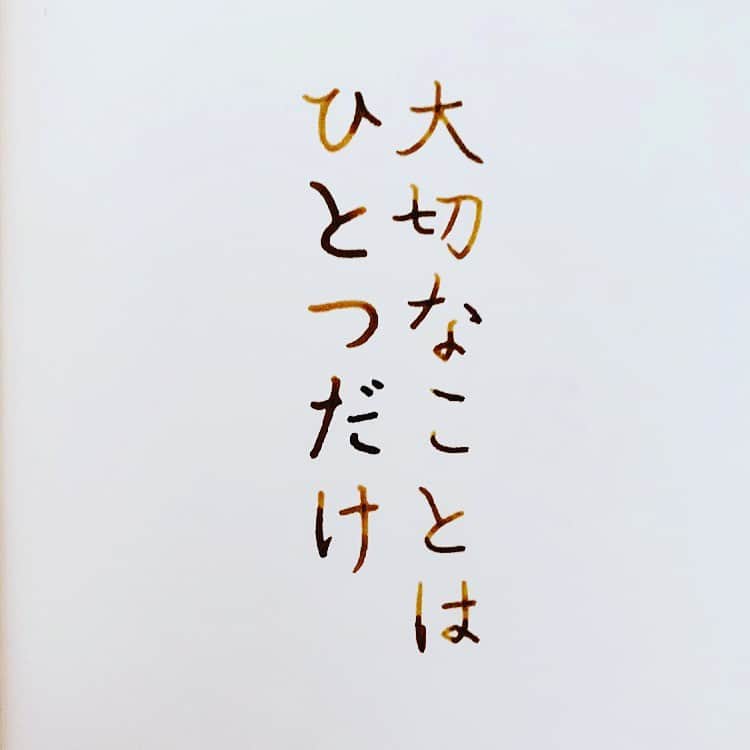 大切なことは
ひとつだけ